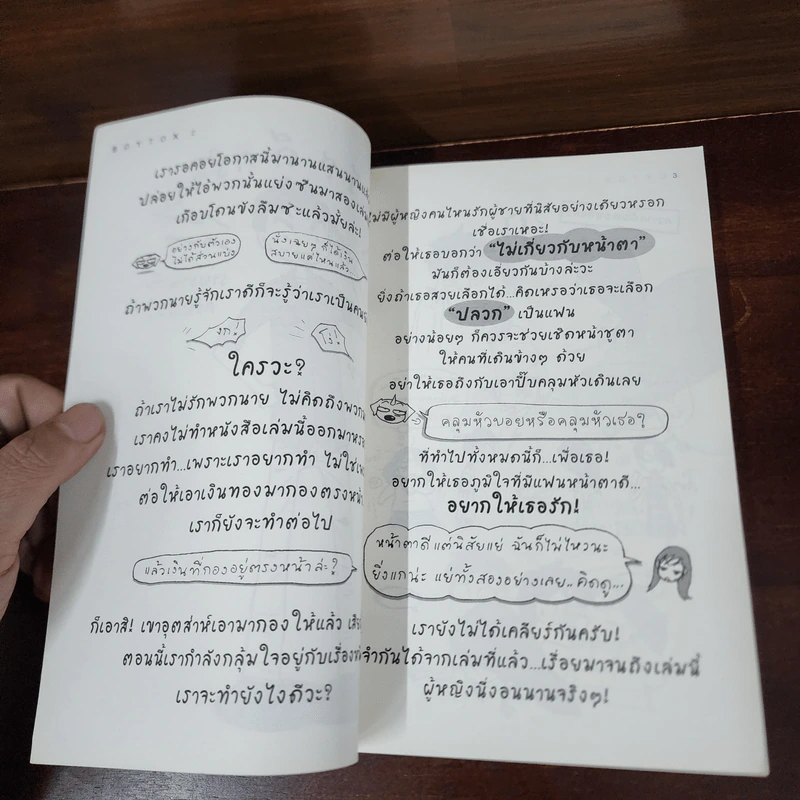 BOYTOX 2
เรารอคอยโอกาสนี้มานานแสนนานแล้ว
ปล่อยให้ไอ้พวกนั้นแย่งซีนมาสองเล่ม
เกือบโดนขังลืมซะแล้วมั้ยล่ะ!
อย่างกับตัวเอง
ไม่ได้ส่วนแบ่ง
นั่งเฉยๆ ก็ได้เงิน
สบายแค่ไหนแล้ว..
ถ้าพวกนายรู้จักเราดีก็จะรู้ว่าเราเป็นคน
งก!
โง่!
ใครวะ?
ถ้าเราไม่รักพวกนาย ไม่คิดถึงพวก
เราคงไม่ทำหนังสือเล่มนี้ออกมาหรอก
เราอยากทำ...เพราะเราอยากทำ ไม่ใช่
ต่อให้เอาเงินทองมากองตรงหน้า
เราก็ยังจะทำต่อไป
แล้วเงินที่กองอยู่ตรงหน้าล่ะ?
ก็เอาสิ! เขาอุตส่าห์เอามากองให้แล้ว
ตอนนี้เรากำลังกลุ้มใจอยู่กับเรื่อง
เราจะทำยังไงดีวะ?
3
ไม่มีผู้หญิงคนไหนรักผู้ชายที่นิสัยอย่างเดียวหรอก
เชื่อเราเหอะ!
ต่อให้เธอบอกว่า “ไม่เกี่ยวกับหน้าตา”
มันก็ต้องเอี่ยวกันบ้างล่ะวะ
ยิ่งถ้าเธอสวยเลือกได้...คิดเหรอว่าเธอจะเลือก
“ปลวก” เป็นแฟน
อย่างน้อยๆ ก็ควรจะช่วยเชิดหน้าชูตา
ให้คนที่เดินข้างๆ ด้วย
อย่าให้เธอถึงกับเอาปี๊บคลุมหัวเดินเลย
คลุมหัวบอยหรือคลุมหัวเธอ?
ที่ทำไปทั้งหมดนี้ก็...เพื่อเธอ!
อยากให้เธอภูมิใจที่มีแฟนหน้าตาดี...
อยากให้เธอรัก!
หน้าตาดีแต่นิสัยแย่ ฉันก็ไม่ไหวนะ
ยิ่งแกน่ะ แย่ทั้งสองอย่างเลย..คิดดู...
เรายังไม่ได้เคลียร์กันครับ!
จำกันได้จากเล่มที่แล้ว...เรื่อยมาจนถึงเล่มนี้
ผู้หญิงนี่งอนนานจริงๆ!